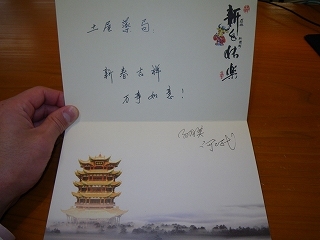 新年快樂
土屋薬局
新春吉祥
万事如意!